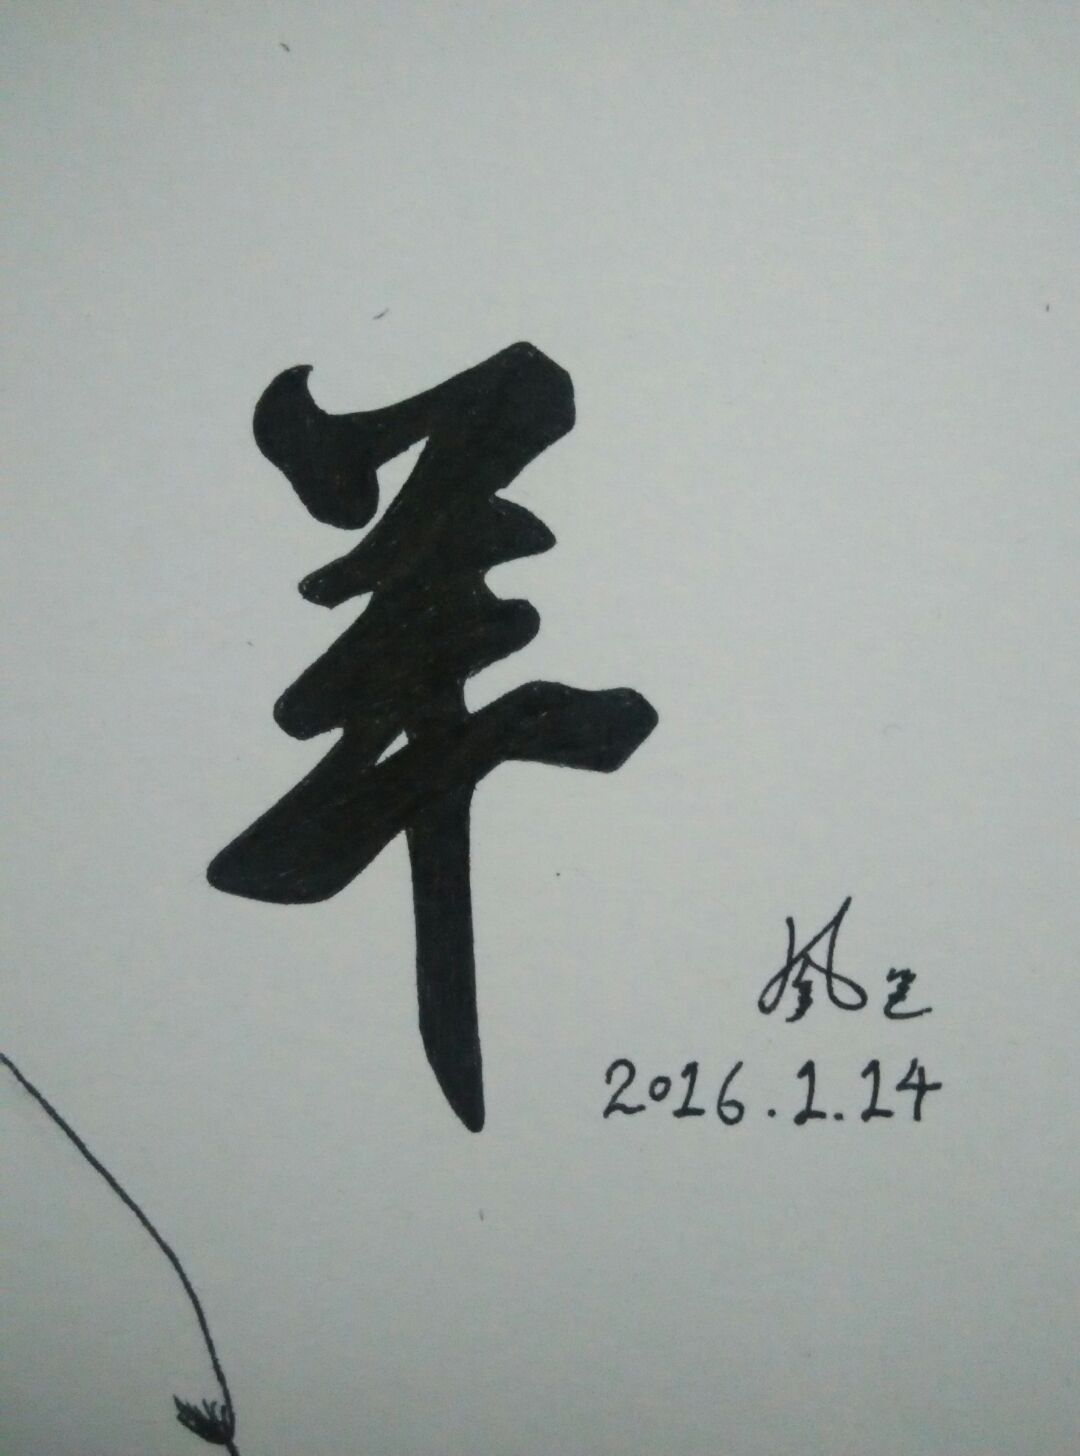 羊
2016.1.14